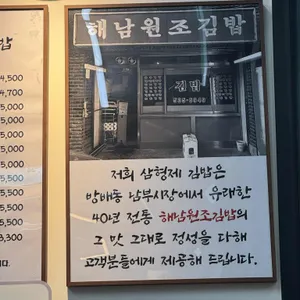 밥
4,500
4,700
5,000
5,000
5,000
5,000
5,500
5,500
5,500
3,300
니다.
해남원조김밥
김밥
저희 삼형제 김밥은
방배동 남부시장에서 유래한
40년 전통 해남원조김밥의
그 맛 그대로 정성을 다해
고객분들에게 제공해 드립니다.